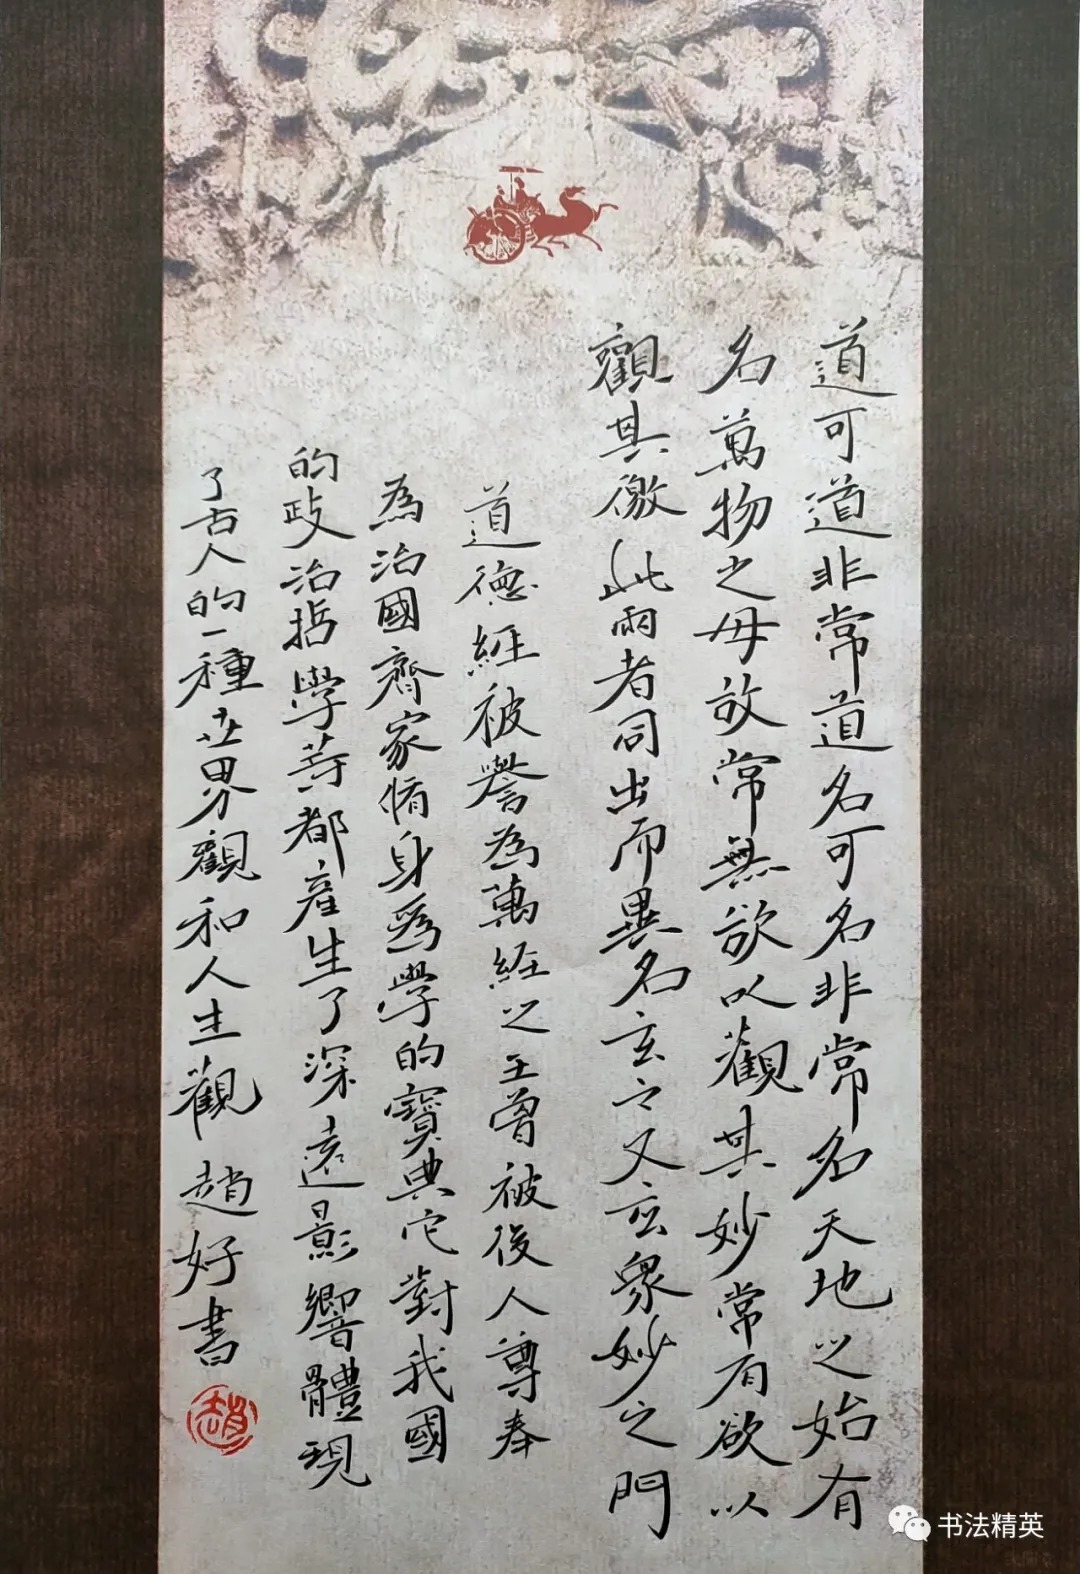 道可道非常道名可名非常名天地之始有
名萬物之母故常無欲以觀其妙常有欲以
觀其徼此兩者同出而異名玄之又玄衆妙之門
道德經被譽為萬經之王曾被後人尊奉
為治國齊家脩身為學的寶典它對我國
的政治哲學等都產生了深遠影響體現
了古人的一種世界觀和人生觀 趙好書
趙
书法精英